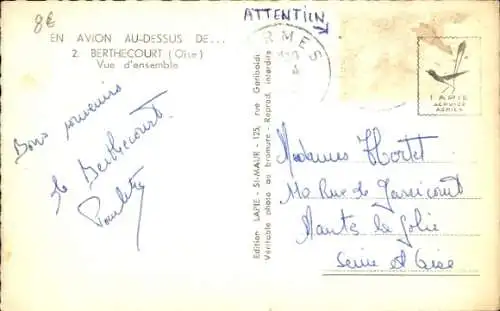 8€
ATTENTION
EN AVION AU-DESSUS DE...
2. BERTHECOURT (Oise)
Vue d'ensemble
RMES
LAPIE
SERVICE
AERIEN
Bons souvenirs
de Berthecourt.
Paulette
Edition LAPIE - St-MAUR - 125, rue Garibaldi
Véritable photo au bromure - Reprod. interdite
Mesdames Hortet
Rue de
Mantes la Jolie
Seine et Oise